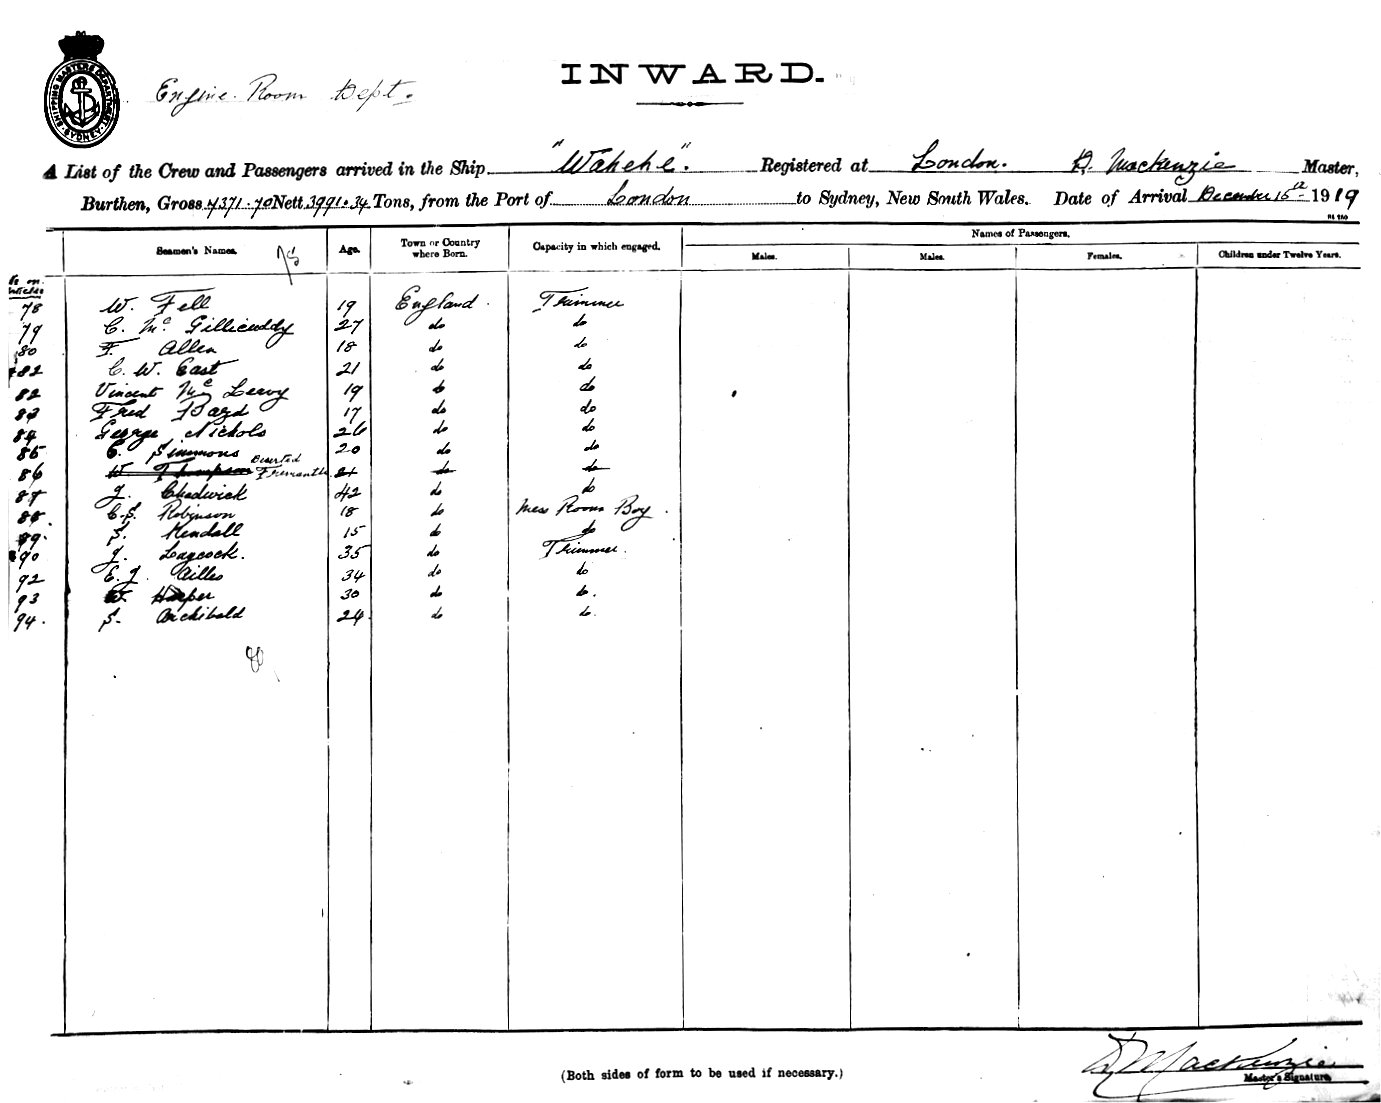 SHIPPING MASTERS DEPARTMENT SYDNEY
INWARD.
Engine Room Dept.
A List of the Crew and Passengers arrived in the Ship "Wahehe". Registered at London. D. Mackenzie Master,
Burthen, Gross 4371.70 Nett 3991.34 Tons, from the Port of London to Sydney, New South Wales. Date of Arrival December 15th 1919
Names of Passengers.
Seamen's Names. Age. Town or Country where Born. Capacity in which engaged. Males. Males. Females. Children under Twelve Years.
No on Articles
78 W. Fell 19 England. Trimmer
79 C. Mc. Gillicuddy 27 do do
80 F. Allen 18 do do
82 C. W. East 21 do do
82 Vincent Mc Leroy 19 do do
83 Fred Bard 17 do do
84 George Nichols 26 do do
85 C. Simmons 20 do do
86 W Thompson Deserted Fremantle 21 do do
87 J. Chadwick 42 do do
88. C.S. Robinson 18 do Mess Room Boy.
89. S. Kendall 15 do do
90 J. Laycock. 35 do Trimmer.
92 E. J. Ailles 34 do do
93 W. Harper 30 do do.
94. S. Archibald 24 do do.
(Both sides of form to be used if necessary.)
D Mackenzie
Master's Signature.